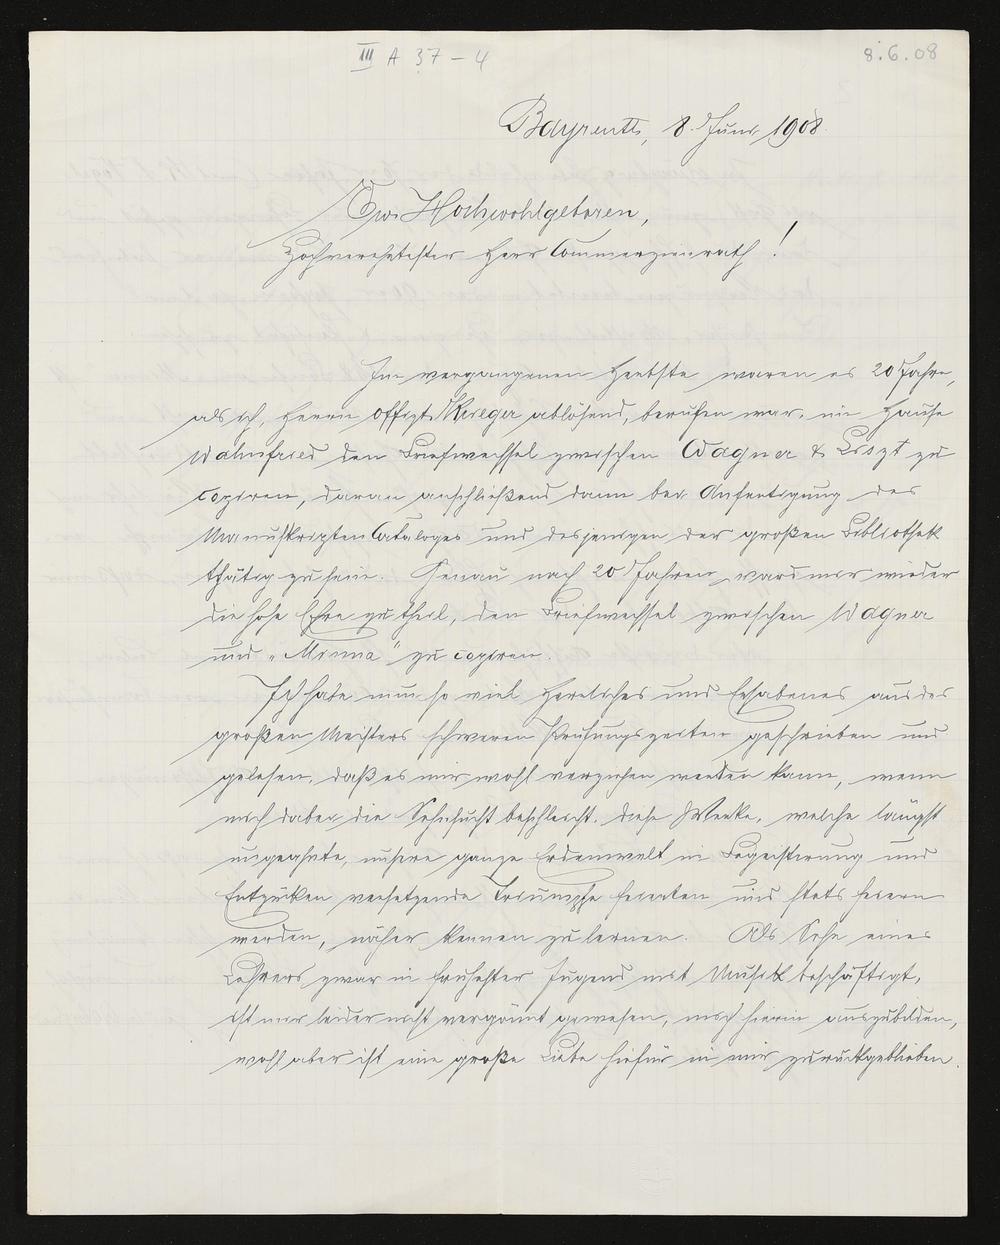 III A 37 – 4
8.6.08
Bayreuth, 8. Juni 1908.
Ew. Hochwohlgeboren,
Hochverehrtester Herr Commerzienrath!
Im vergangenen Herbste waren es 20 Jahre,
als ich, Herrn Offizt. Krieger ablösend, berufen war, im Hause
Wahnfried den Briefwechsel zwischen Wagner & Liszt zu
copiren, daran anschließend dann bei Anfertigung des
Manuskripten Cataloges und desjenigen der großen Bibliothek
thätig zu sein. Genau nach 20 Jahren ward mir wieder
die hohe Ehre zu theil, den Briefwechsel zwischen Wagner
und „Minna" zu copiren.
Ich habe nun so viel Herrliches und Erhabenes aus des
großen Meisters schweren Prüfungszeiten geschrieben und
gelesen, daß es mir wohl verziehen werden kann, wenn
mich dabei die Sehnsucht beschleicht, diese Werke, welche längst
ungeahnte, unsere ganze Erdenwelt in Begeisterung und
Entzücken versetzende Triumphe feierten und stets feiern
werden, näher kennen zu lernen. Als Sohn eines
Lehrers zwar in frühester Jugend mit Musik beschäftigt,
ist mir leider nicht vergönnt gewesen, mich hierin auszubilden,
wohl aber ist eine große Liebe hiefür in mir zurückgeblieben.